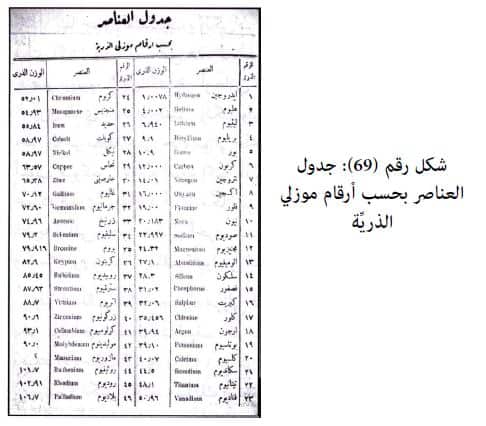 جدول العناصر
بحسب أرقام موزلي الذرية
الرقم الذري العنصر الوزن الذري الرقم الذري العنصر الوزن الذري
١ ايدروجين Hydrogen ١٫٠٠٧٨ ٢٤ كروم Chromium ٥٢٫٠١
٢ هليوم Helium ٤٫٠٠٢ ٢٥ منجنيس Manganese ٥٤٫٩٣
٣ ليثيوم Lithium ٦٫٩٤٠ ٢٦ حديد Iron ٥٥٫٨٤
٤ بريليوم Beryllium ٢٧ كوبلت Cobalt ٥٨٫٩٧
٥ بور Boron ١٠٫٩ ٢٨ نيكل Nickel
٦ كربون Carbon ١٢٫٠٠٠ ٢٩ نحاس Copper ٦٣٫٥٧
٧ نتروجين Nitrogen ١٤٫٠١ ٣٠ خارصين Zinc ٦٥٫٣٨
٨ اكسجين Oxygen ١٦٫٠٠٠ ٣١ غاليوم Gallium ٧٠٫١٢
٩ فلور Fluorine ١٩٫٠٠ ٣٢ جرمانيوم Germanium ٧٢٫٦٠
١٠ نيون Neon ٢٠٫١٨٣ ٣٣ زرنيخ Arsenic ٧٤٫٩٦
١١ صوديوم Sodium ٢٢٫٩٩٧ ٣٤ سلينيوم Selenium ٧٩٫٢
١٢ مجنيزيوم Magnesium ٢٤٫٣٢ ٣٥ بروم Bromine ٧٩٫٩١٦
١٣ الومنيوم Aluminium ٣٦ كربتون Krypton ٨٢٫٩
١٤ سلكون Silicon ٢٨٫٣ ٣٧ روبيديوم Rubidium ٨٥٫٤٥
١٥ فصفور Phosphorus ٣١٫٠٢ ٣٨ سترنتيوم Strontium ٨٧٫٦٣
١٦ كبريت Sulphur ٣٢٫٠٦ ٣٩ اتريوم Yttrium ٨٨٫٧
١٧ كلور Chlorine ٣٥٫٤٥٦ ٤٠ زركونيوم Zirconium
١٨ ارجون Argon ٣٩٫٩٤ ٤١ كولومبيوم Columbium ٩٣٫١
١٩ بوتاسيوم Potassium ٣٩٫١٠ ٤٢ موليبدينوم Molybdenum
٢٠ كلسيوم Calcium ٤٠٫٠٧ ٤٣ مازوريوم Masurium ؟
٢١ سكانديوم Scandium ٤٤ روثنيوم Ruthenium ١٠١٫٧
٢٢ تيتانيوم Titanium ٤٨٫١ ٤٥ روديوم Rhodium ١٠٢٫٩١
٢٣ فناديوم Vanadium ٥٠٫٩٦ ٤٦ بلاديوم Palladium ١٠٦٫٧
شكل رقم (69): جدول
العناصر بحسب أرقام موزلي
الذريَّة